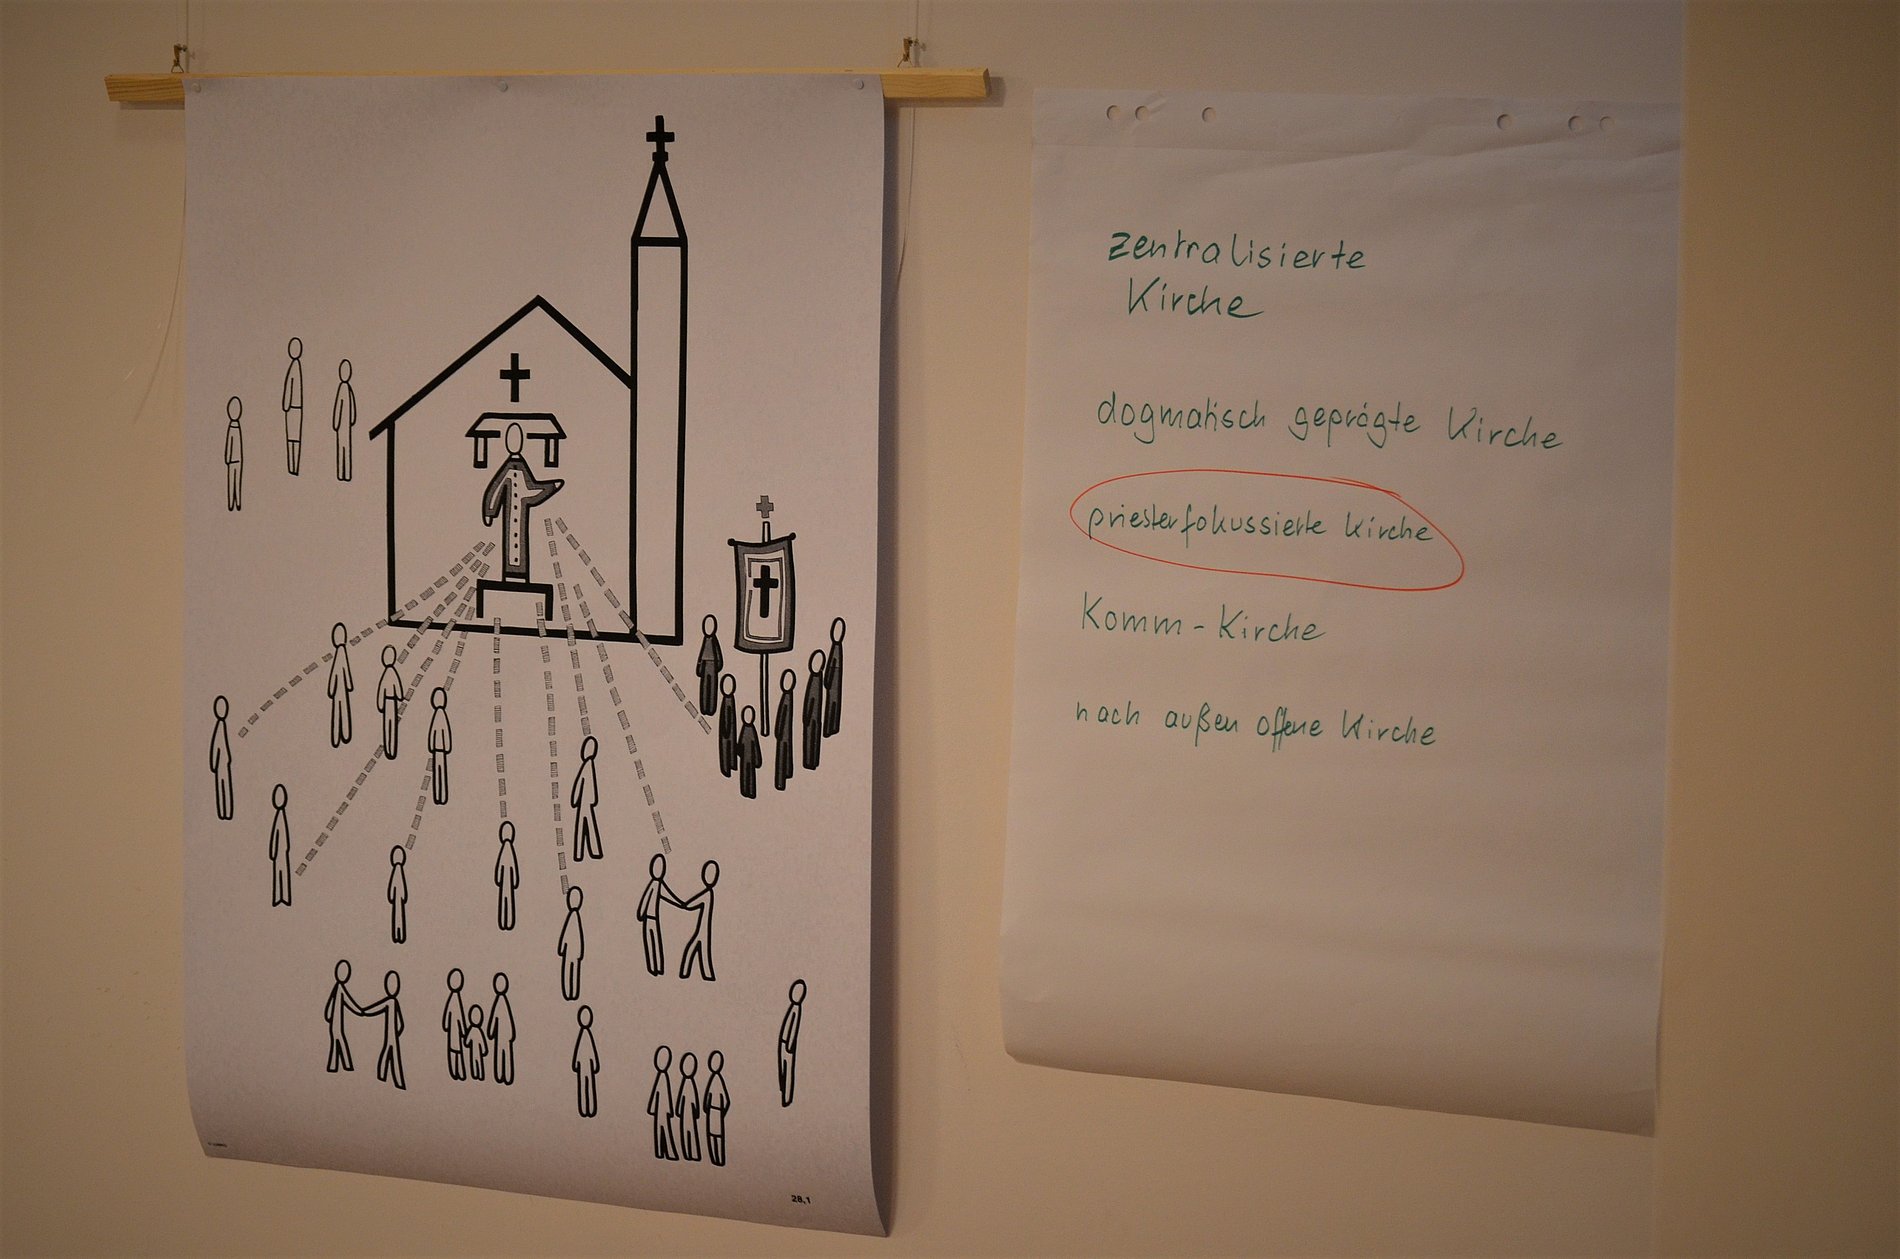 zentralisierte
Kirche
dogmatisch geprägte Kirche
priesterfokussierte Kirche
Komm-Kirche
nach außen offene Kirche
28.1